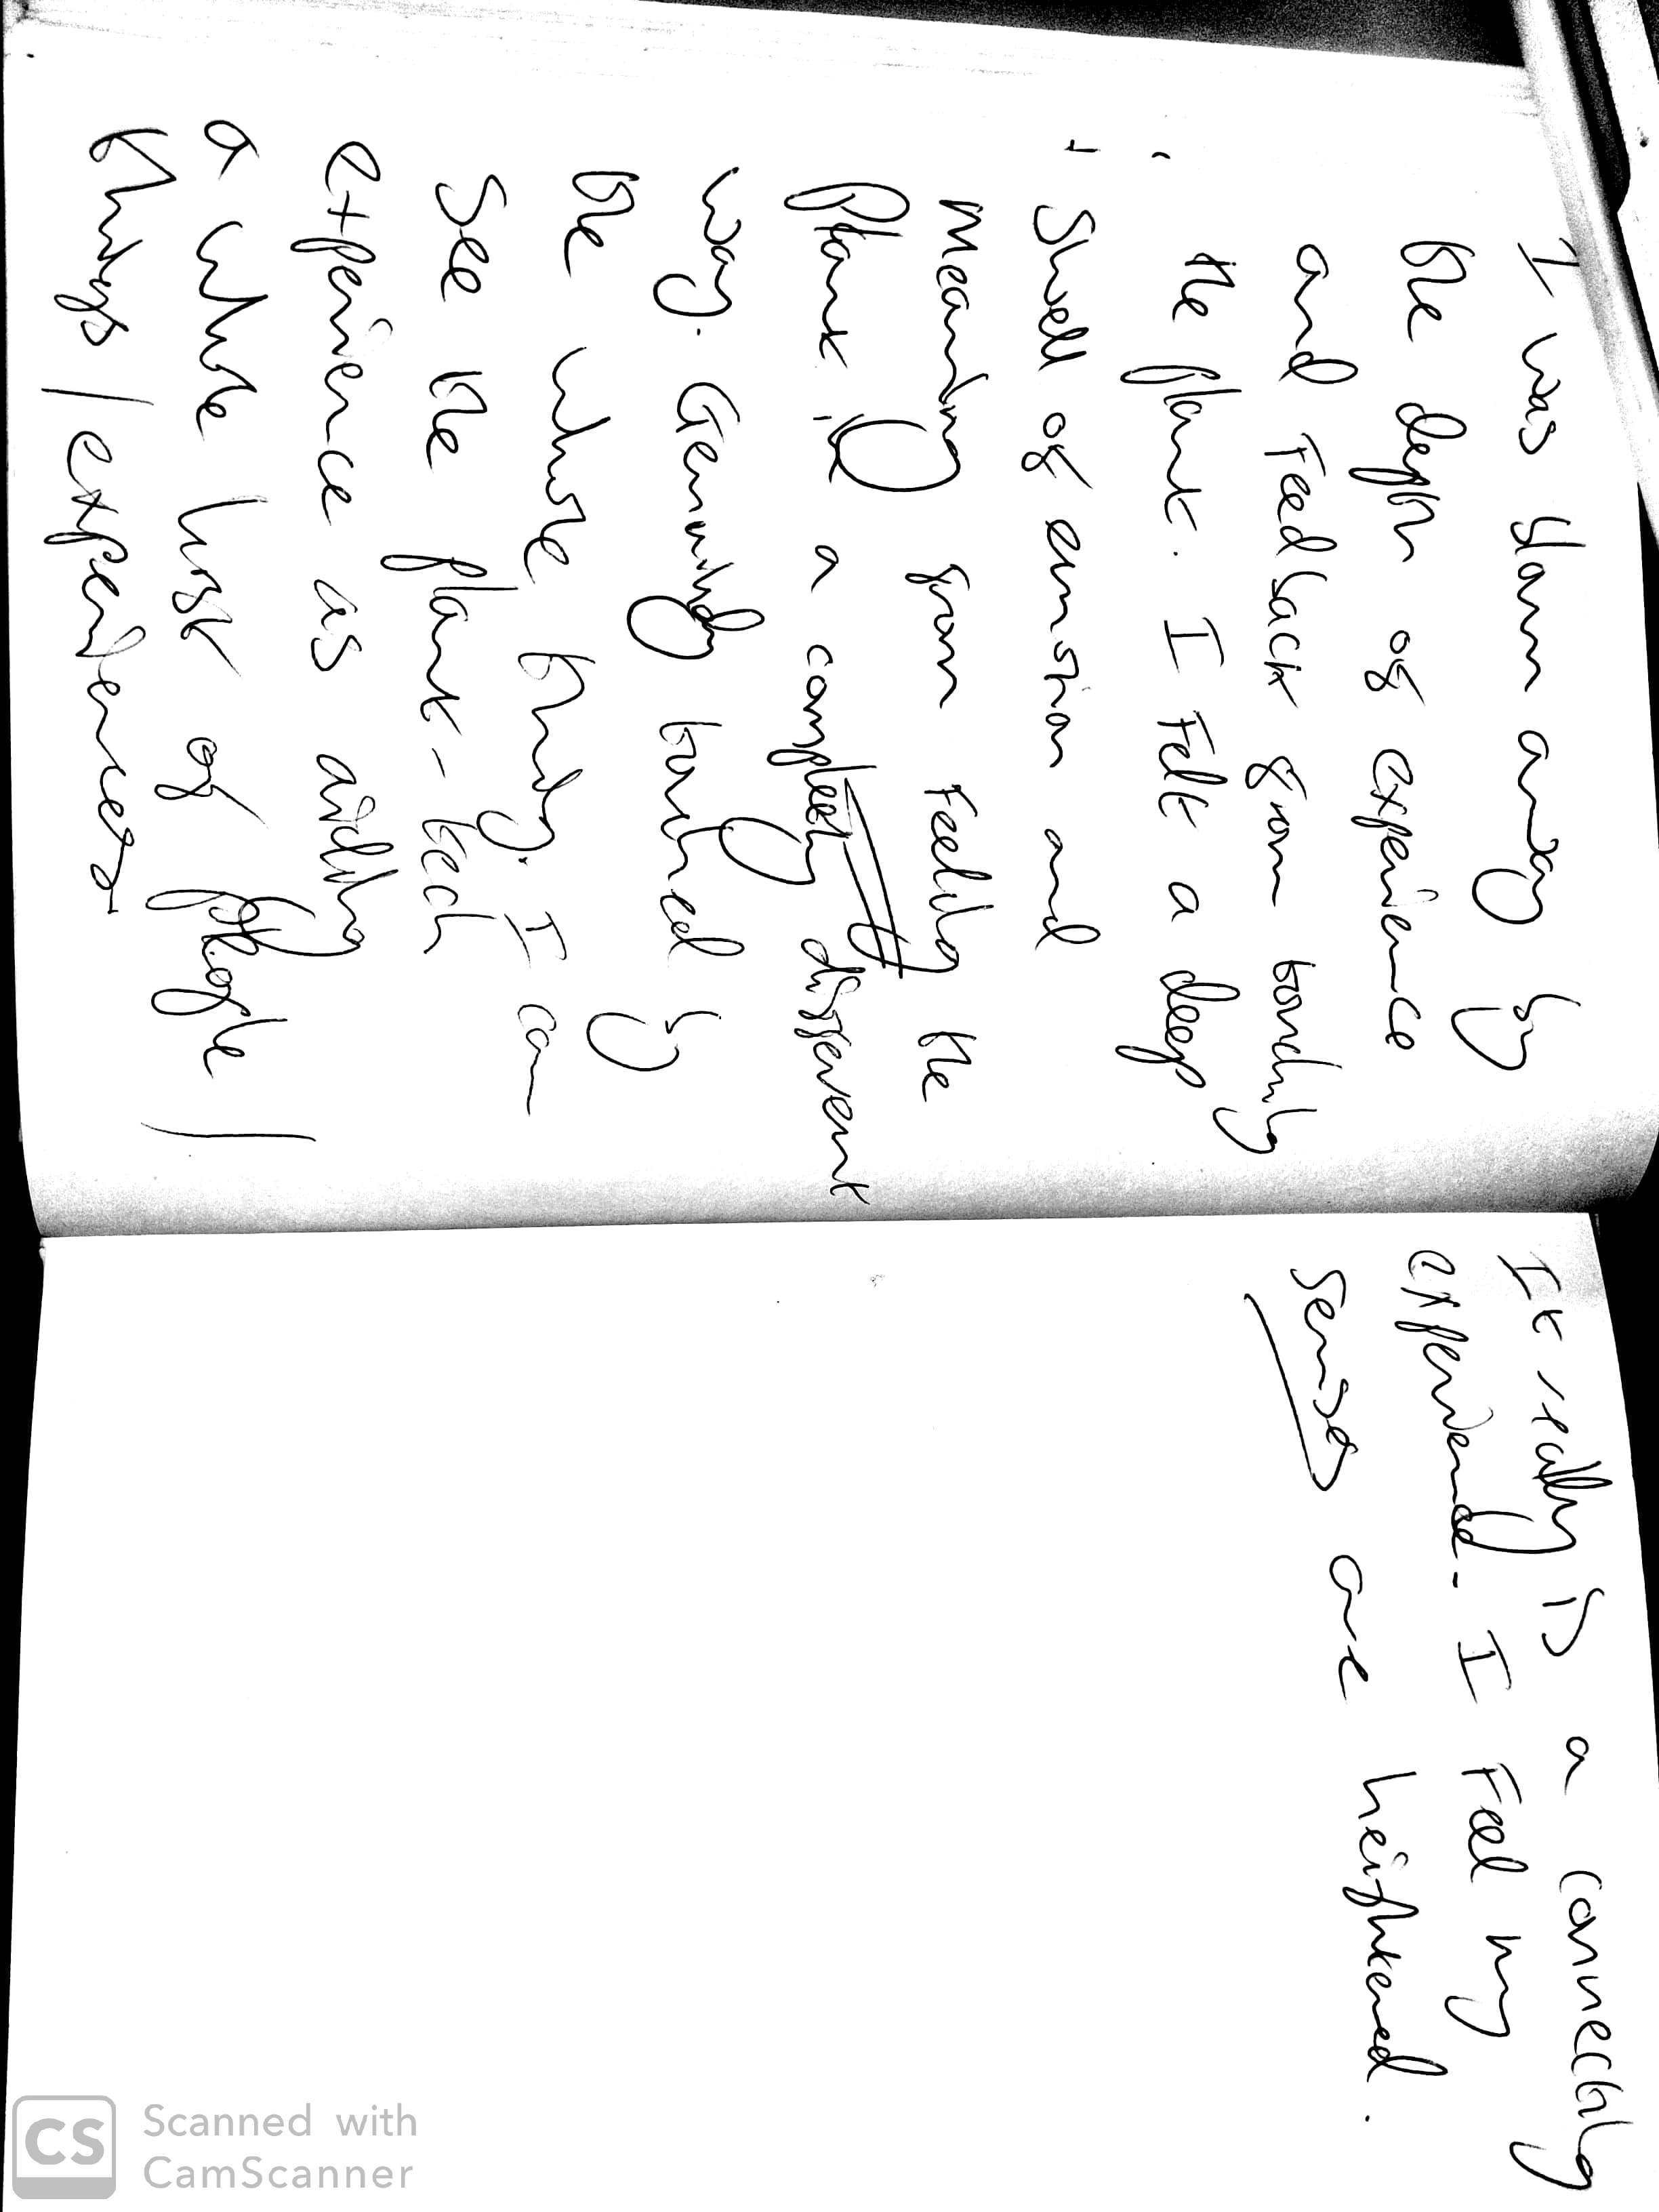 I was blown away by
the depth of experience
and Feedback from touching
the plant. I Felt a deep
swell of emotion and
meaning from Feeling the
plant in a completely different
way. Genuinely touched by
the whole thing. I can
see the plant-tech
experience as aiding
a whole host of people /
things / experiences
It really is a connecting
experience. I Feel my
senses are heightened.
Scanned with
CamScanner
CS